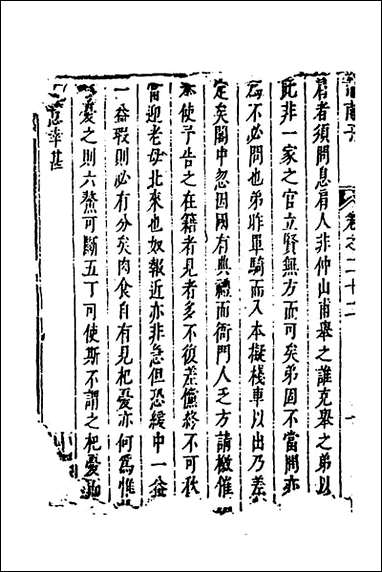 卷之二十二
肩者須問息肩人非仲山甫舉之誰克舉之弟以
此非一家之官立賢無方而可矣弟固不當問亦
為不必問也弟昨單騎而入本擬棧車以出乃差
定矣閣中忽因國有典禮而衙門人乏方請檄催
使予告之在籍者見者多不復差儻終不可秋
迎老母北來也奴報近亦非急但恐緩中一益
一益瑕則必有分矣肉食自有見杞憂亦何為惟
憂之則六鰲可斷五丁可使斯不謂之杞憂
幸甚